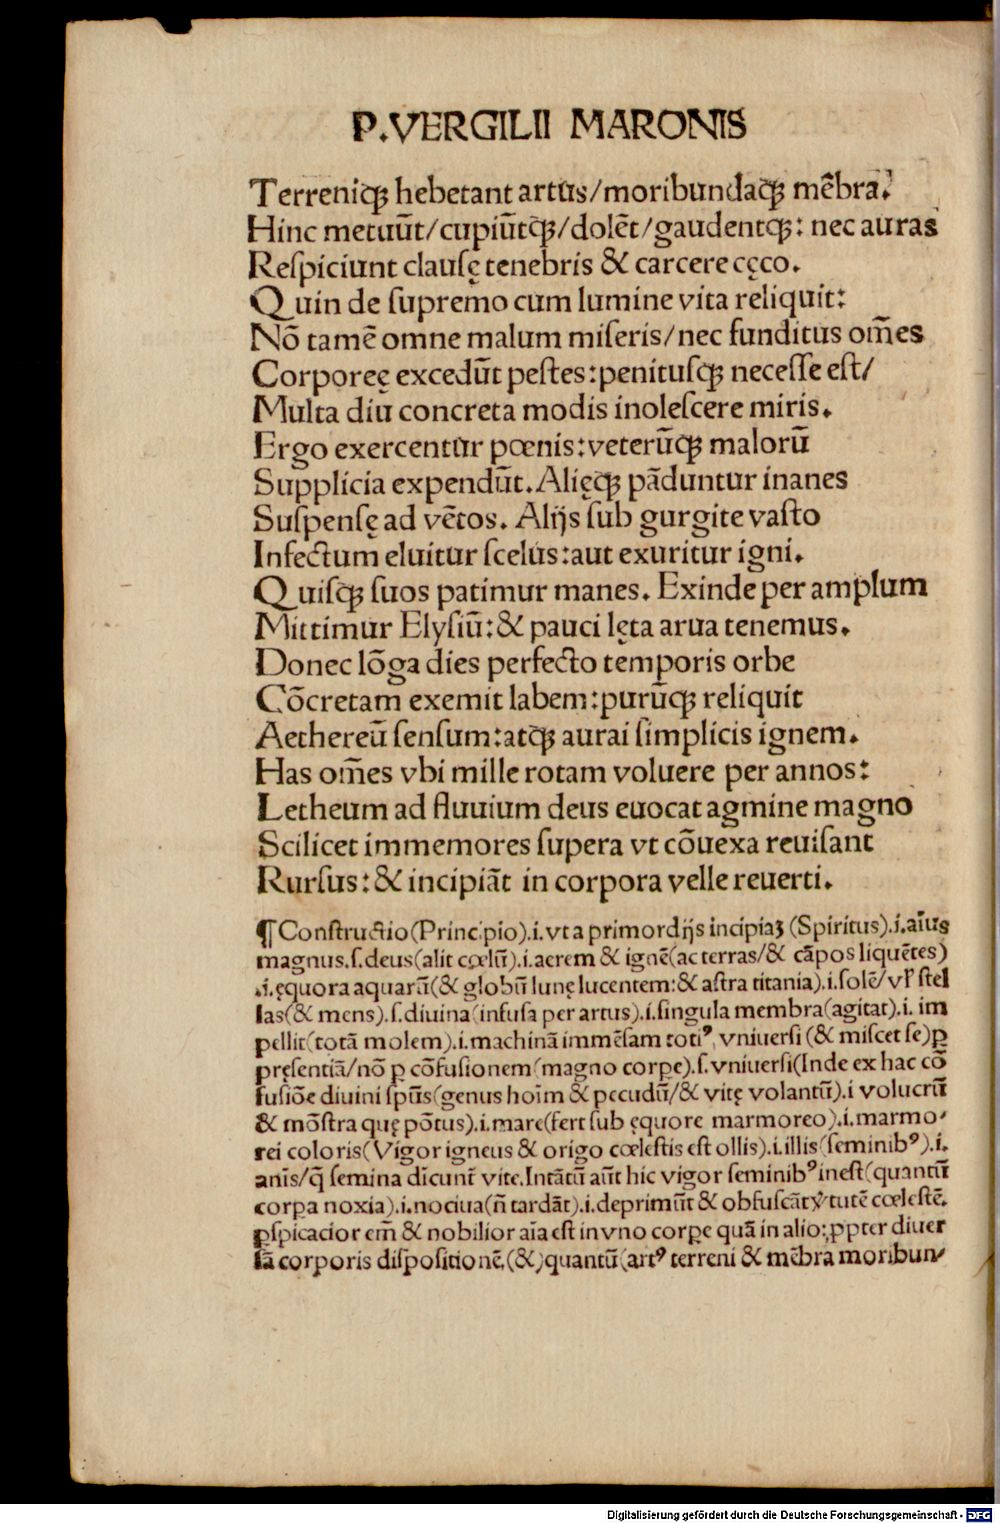 P.VERGILII MARONIS
Terreniqꝫ hebetant artus/moribundaqꝫ mẽbra.
Hinc metuũt/cupiũtqꝫ/dolẽt/gaudentqꝫ: nec auras
Reſpiciunt clauſę tenebris & carcere cęco.
Quin de ſupremo cum lumine vita reliquit:
Nõ tamẽ omne malum miſeris/nec funditus om̃es
Corporeę excedũt peſtes:penituſqꝫ neceſſe eſt/
Multa diu concreta modis inoleſcere miris.
Ergo exercentur pœnis:veterũqꝫ malorũ
Supplicia expendũt.Alięqꝫ pãduntur inanes
Suſpenſę ad vẽtos. Alijs ſub gurgite vaſto
Infectum eluitur ſcelus:aut exuritur igni.
Quiſqꝫ ſuos patimur manes. Exinde per amplum
Mittimur Elyſiũ:& pauci lęta arua tenemus.
Donec lõga dies perfecto temporis orbe
Cõcretam exemit labem:purũqꝫ reliquit
Aethereũ ſenſum:atqꝫ aurai ſimplicis ignem.
Has om̃es vbi mille rotam voluere per annos:
Letheum ad fluuium deus euocat agmine magno
Scilicet immemores ſupera vt cõuexa reuiſant
Rurſus:& incipiãt in corpora velle reuerti.
¶ Conſtructio(Principio).i.vt a primordijs incipiaꝫ (Spiritus).i.aĩus
magnus.ſ.deus(alit cœlũ).i.aerem & ignẽ(ac terras/& cãpos liquẽtes)
.i.ęquora aquarũ(& globũ lunę lucentem:& aſtra titania).i.ſolẽ/vꝉ ſtel
las(& mens).ſ.diuina(infuſa per artus).i.ſingula membra(agitat).i. im
pellit(totã molem).i.machinã immẽſam totiꝰ vniuerſi (& miſcet ſe)ꝑ
pręſentiã/nõ ꝑ cõfuſionem(magno corꝑe).ſ.vniuerſi(Inde ex hac cõ
fuſiõe diuini ſpũs(genus hoĩm & pecudũ/& vitę volantũ).i volucrũ
& mõſtra quę põtus).i.mare(fert ſub ęquore marmoreo).i.marmo⸗
rei coloris(Vigor igneus & origo cœleſtis eſt ollis).i.illis(ſeminibꝰ).i.
anĩs/q̃ ſemina dĩcunt᷑ vite.Intãtũ aũt hic vigor ſeminibꝰ ineſt(quantũ
corꝑa noxia).i.nociua(ñ tardãt).i.deprimũt & obfuſcãt v̾tutẽ cœleſtẽ.
ꝑſpicacior em̃ & nobilior aĩa eſt in vno corꝑe quã in alio:ꝓpter diuer
ſã corporis diſpoſitionẽ.(&)quantũ(artꝰ terreni & mẽbra moribun⸗
Digitalisierung gefördert durch die Deutsche Forschungsgemeinschaft - DFG